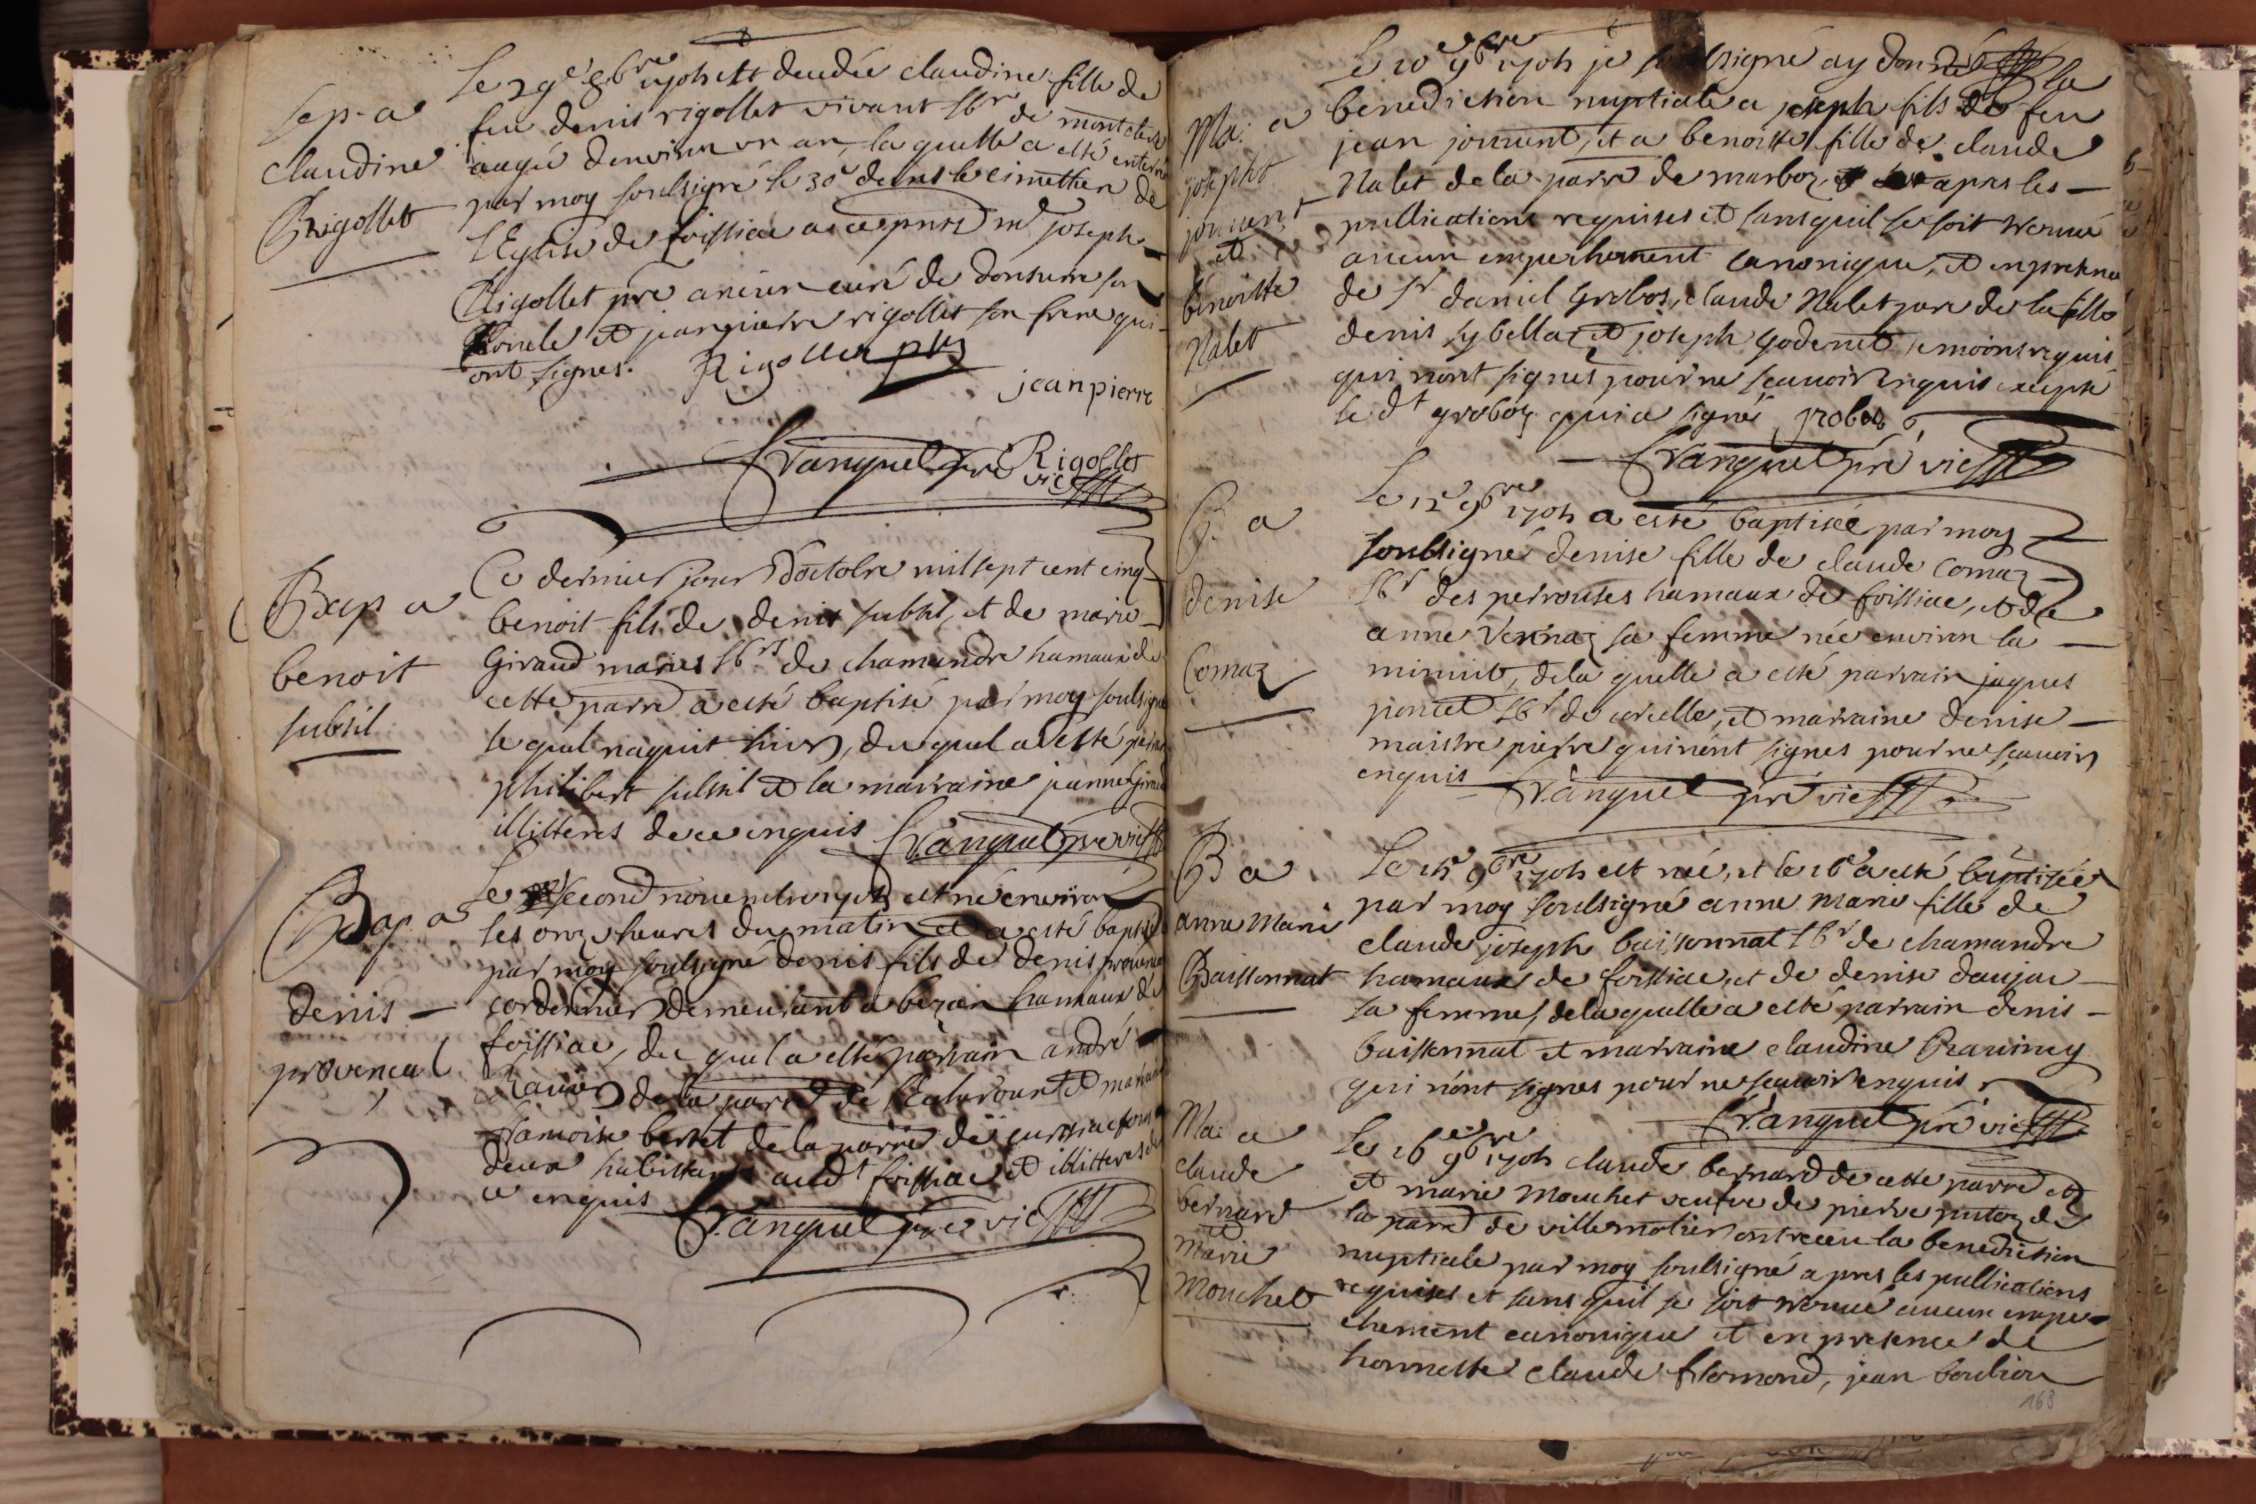 Sep. a
Claudine
Rigollet
Le 29e 8bre 1705 est decedée claudine fille de
feu denis rigollet vivant lbr de
aagée denviron un an, la quelle a esté enterré
par moy soubsigné le 30e dans le cimethier de
l'Eglise de foissiac a ce pnts mr joseph
Rigollet pre ancien curé de donsure son
oncle et jeanpierre rigollet son frere qui
ont signes. Rigollet
jeanpierre
Rigollet
Vanquel pre vic
Bap a
benoit
subtil
Ce dernier jour d'octobre mil sept cent cinq
benoit fils de denis subtil, et de marie
Giraud mariés lbrs de chamandre hamaux de
cette parre a esté baptisé par moy soubsigné
le quel naquit hier, du quel a esté
philibert subtil et la marraine jeanne Giraud
illitteres de ce enquis Vanquel pre vic
Bap. a
denis
provencal
Le second novembre 1705 est né environ
les onze heures du matin et a esté baptisé
par moy soulsigné denis fils de denis provencal
cordonnier demeurant a bezan hamaux de
foissiac, du quel a esté parrain andré
de la parre de et
françoise de la parre de
deux habittants aud foissiac et illitteres de
ce enquis
Vanquel pre vic
Ma: a
josepht
jouvent
et
benoitte
Nalet
Le 10e 9bre 1705 je soubsigné ay donné la
benediction nuptiale a joseph fils de feu
jean jouvent, et a benoitte fille de claude
Nalet de la parre de marboz, apres les
publications requises et sans quil se soit trouvé
aucun empechement canonique, et en presence
de sr daniel Groboz, claude Nalet pere de la fille
denis sybellaz et joseph Godenet temoins requis
qui nont signes pour ne scavoir enquis excepté
le dt groboz qui a signé groboz
Vanquel pre vic
B a
denise
Comaz
Le 12e 9bre 1705 a esté baptisée par moy
soubsigné denise fille de claude Comaz
lbr des perrouses hamaux de foissiac, et de
anne Vernaz sa femme née environ la
minuit, de la quelle a esté parrain jaques
poncet lbr de corcelle, et marraine denise
maistre pierre qui nont signes pour ne scavoir
enquis Vanquel pre vic
B a
anne Marie
Buissonnat
Le 15e 9bre 1705 est née, et le 16e a esté baptisée
par moy soulsigné anne marie fille de
claude joseph buissonnat lbr de chamandre
hamaux de foissiac, et de denise daujac
sa femme, de la quelle a esté parrain denis
buissonnat et marraine claudine
qui nont signes pour ne scavoir enquis
Vanquel pre vic
Ma: a
claude
bernard
et
Marie
Mouchet
Le 16e 9bre 1705 claude bernard de cette parre et
et marie Mouchet veufve de pierre putoz de
la parre de villemotier ont receu la benediction
nuptiale par moy soulsigné apres les publications
requises et sans quil se soit trouvé aucun empe-
chement canonique et en presence de
honneste claude flamond, jean boulion
168